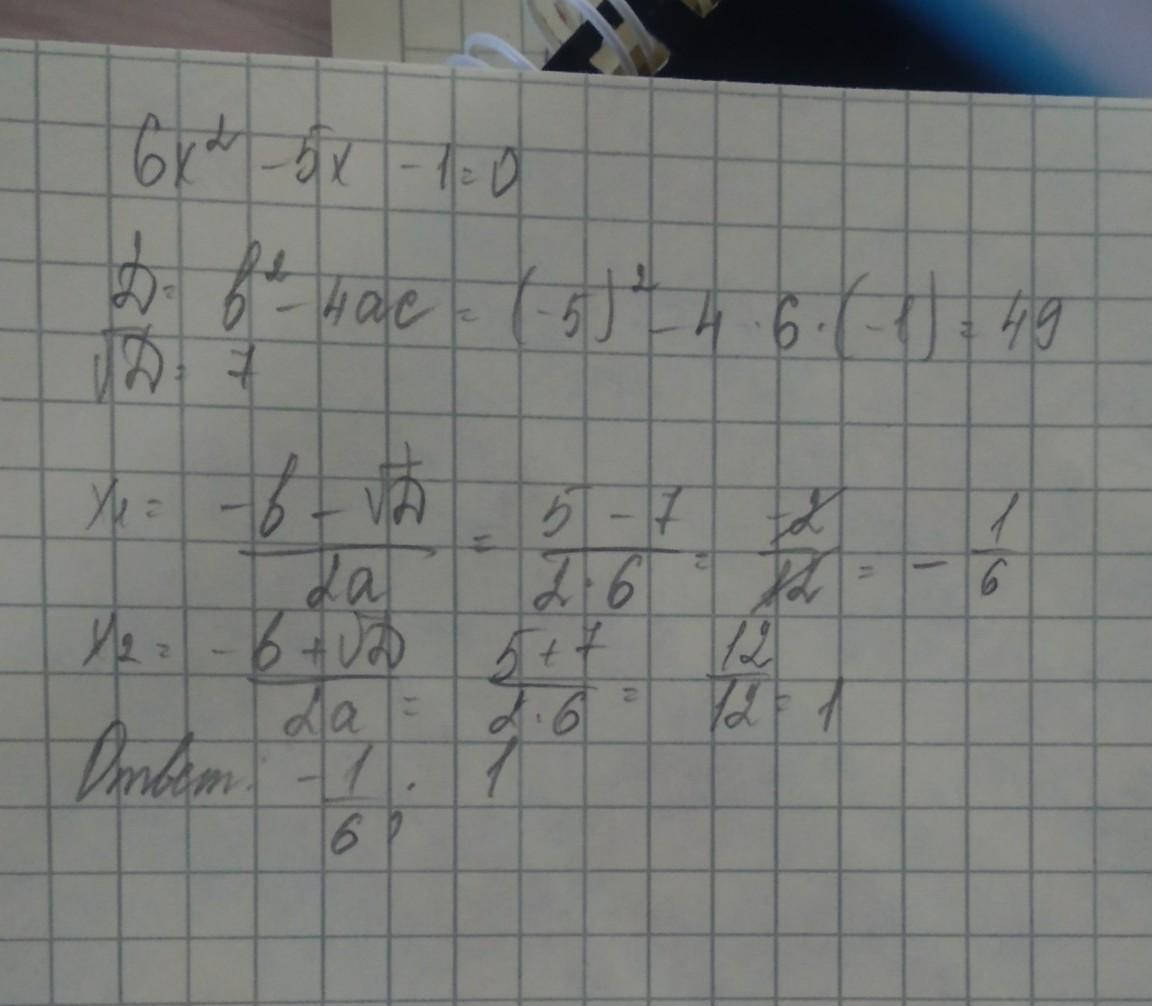 6x² - 5x - 1 = 0
D = b² - 4ac = (-5)² - 4 · 6 · (-1) = 49
√D = 7
x₁ = (-b - √D)/2a = (5 - 7)/(2·6) = -2/12 = -1/6
x₂ = (-b + √D)/2a = (5 + 7)/(2·6) = 12/12 = 1
Ответ: -1/6; 1